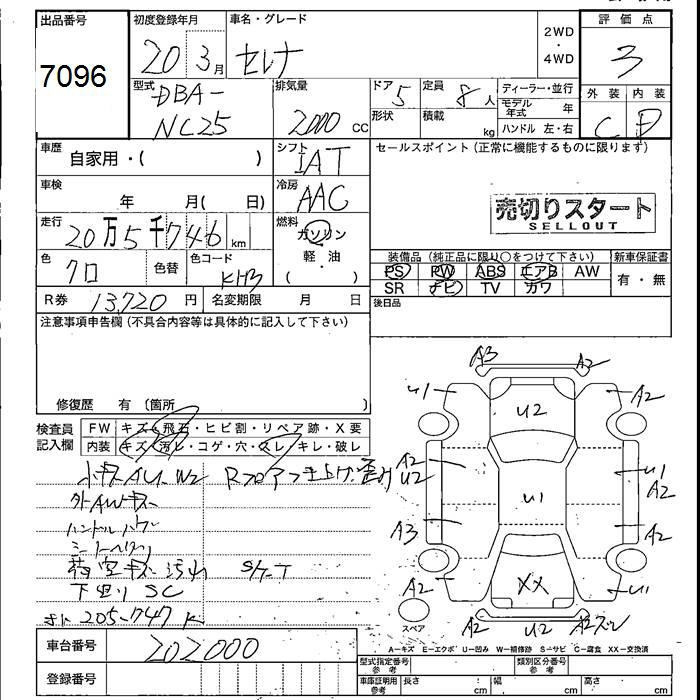 出品番号 初度登録年月 車名・グレード 評価点
7096 20 3月 セレナ 2WD・4WD 3
型式 排気量 ドア 定員 ディーラー・並行 外装 内装
DBA- 5 8人 モデル年式 年 C D
NC25 2000cc 形状 積載 kg ハンドル 左・右
車歴 自家用・( ) シフト IAT セールスポイント(正常に機能するものに限ります)
車検 年 月( 日) 冷房 AAC
売切りスタート
SELLOUT
走行 20万5千746km 燃料 ガソリン
軽・油
・( )
色 クロ 色替 色コード KH3
装備品(純正品に限り○をつけて下さい) 新車保証書
PS PW ABS エアB AW 有・無
SR ナビ TV カワ
R券 13,720円 名変期限 月 日 後日品
注意事項申告欄(不具合内容等は具体的に記入して下さい)
修復歴 有 〔箇所
検査員記入欄 FW キズ・飛石・ヒビ割・リペア跡・X要
内装 キズ・汚レ・コゲ・穴・スレ・キレ・破レ
小キズAU.W2
外AWキズ
下回りSC
205-747K
A3 A2
U1 U2 A2
A2 U2 U1 U1 A2
A3 A2
A2 XX U1
スペア A2 U2 A2
A-キズ E-エクボ U-凹み W-補修跡 S-サビ C-腐食 XX-交換済
車台番号 202000
登録番号
型式指定番号 参考 類別区分番号 参考
車庫証明用 参考 長さ: cm 幅: cm 高さ: cm